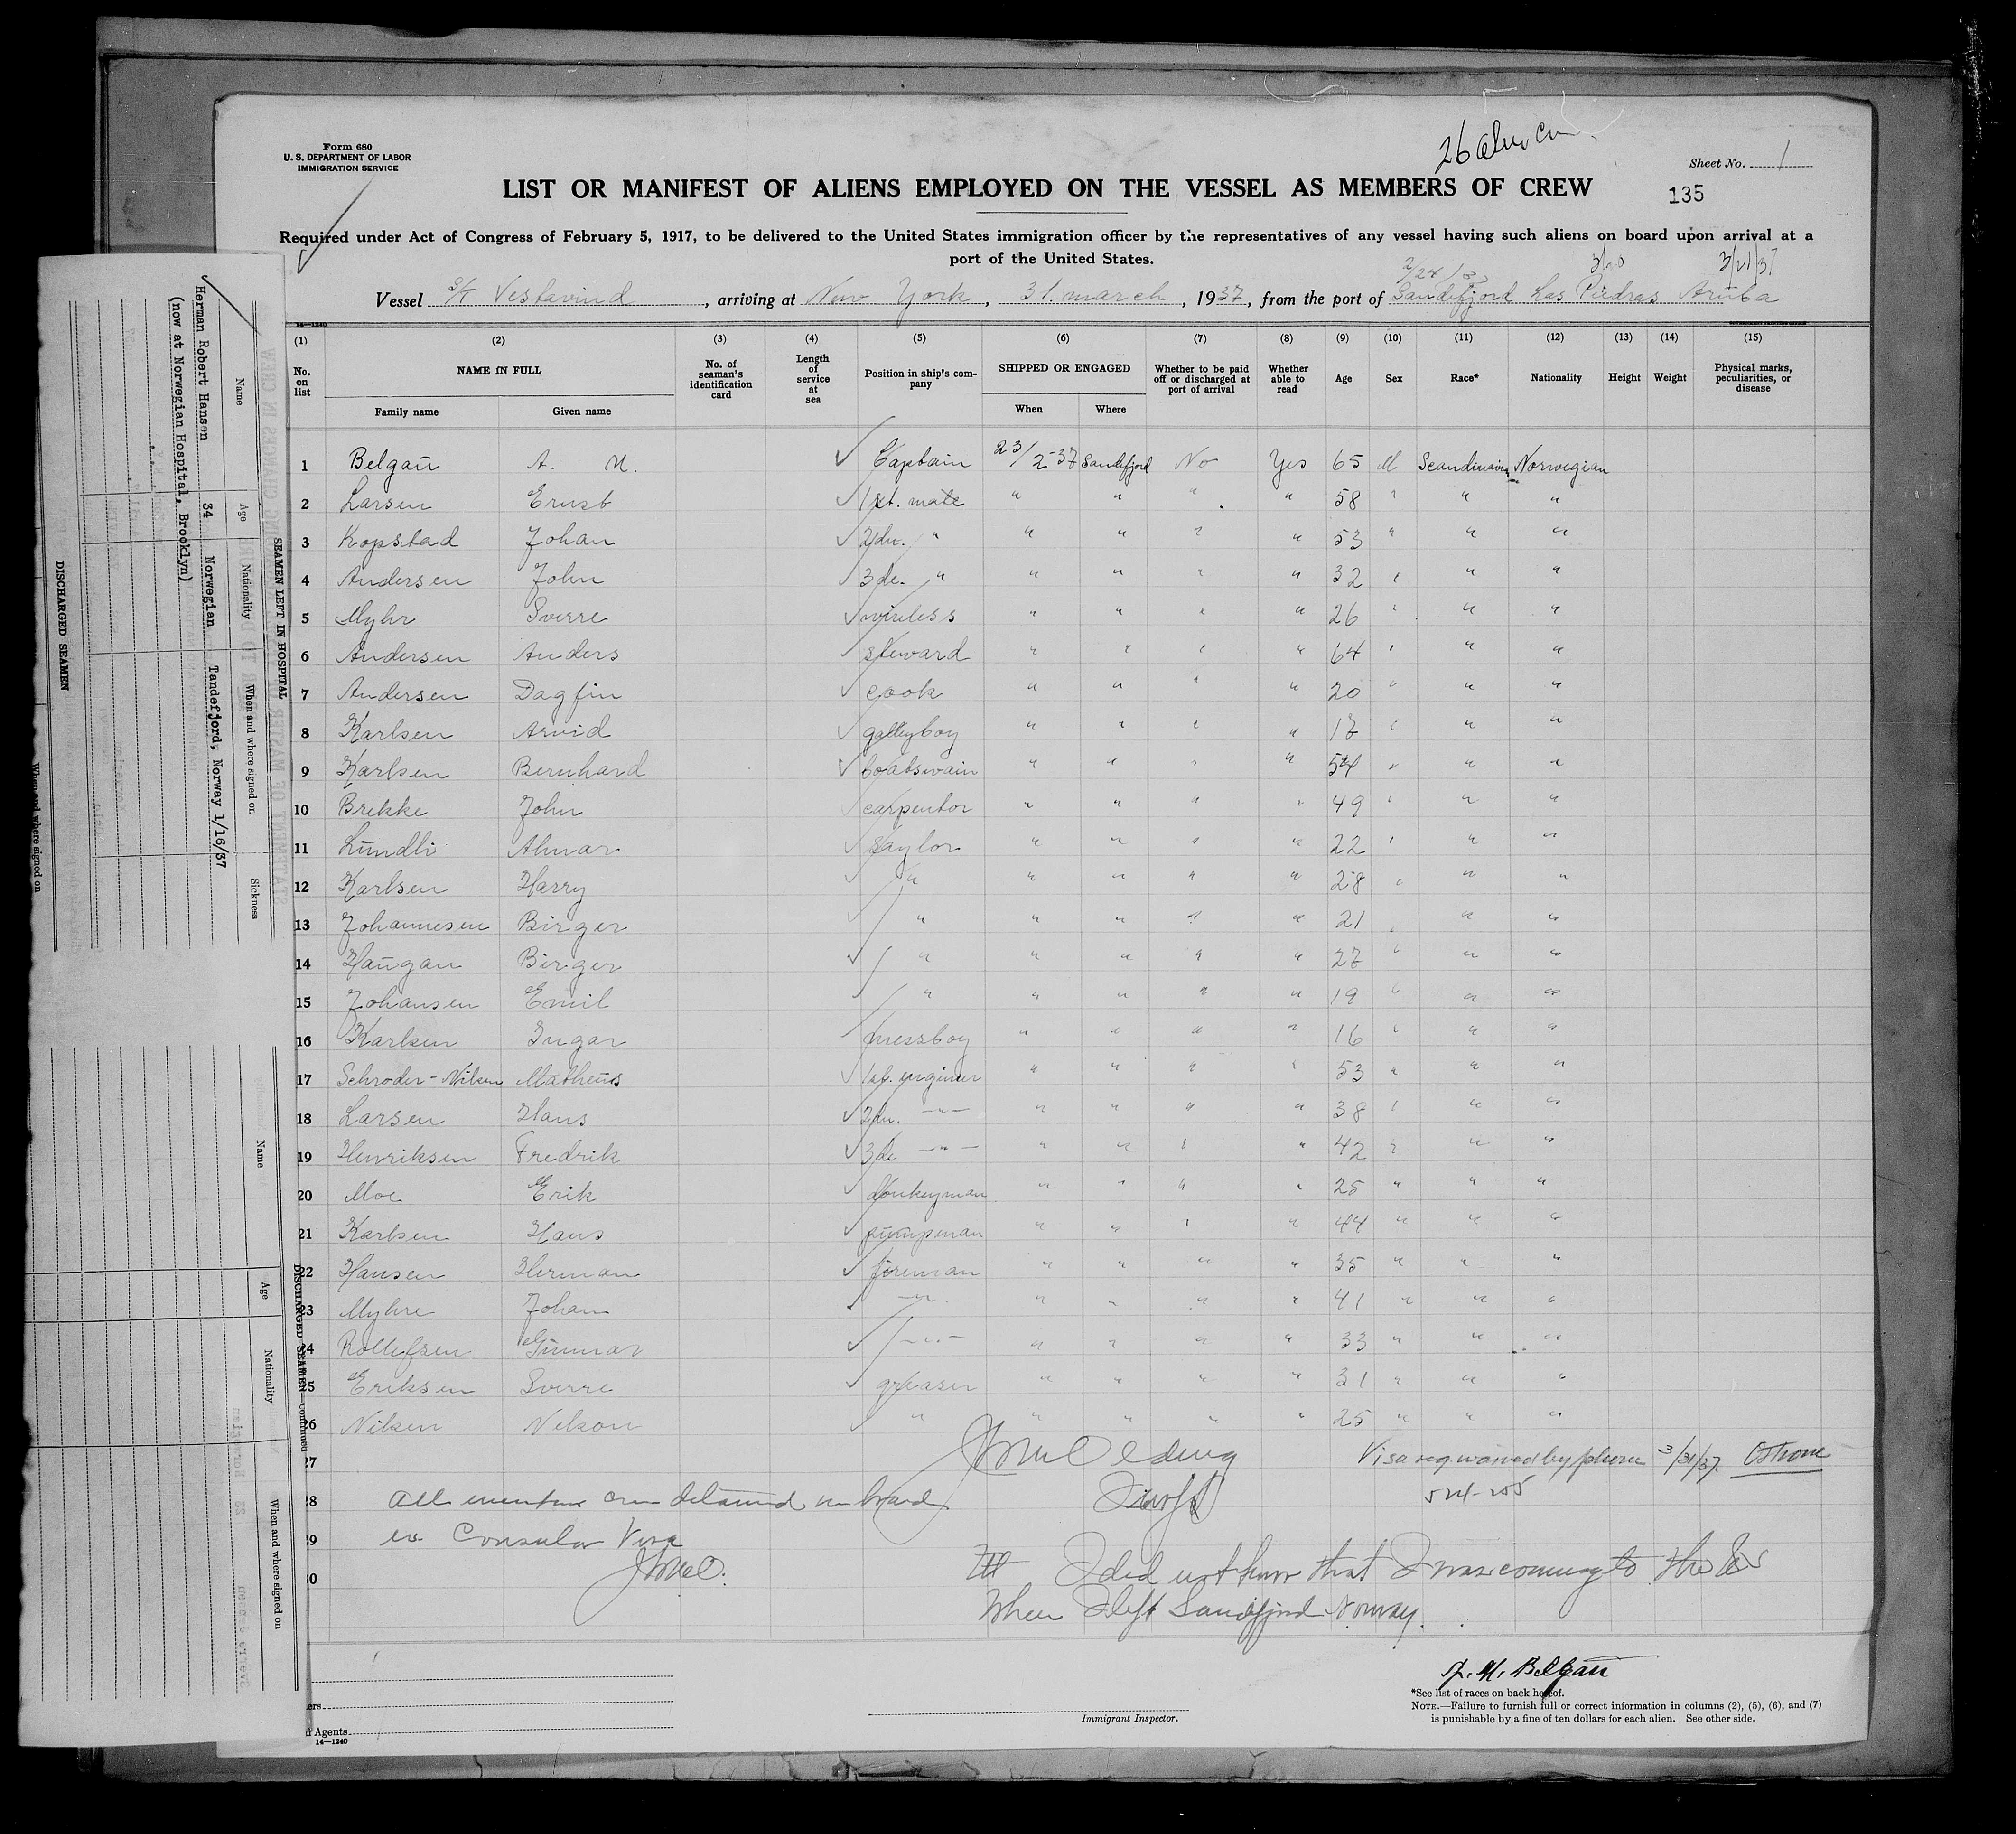 Form 680
U. S. DEPARTMENT OF LABOR
IMMIGRATION SERVICE
26
Sheet No. 1
LIST OR MANIFEST OF ALIENS EMPLOYED ON THE VESSEL AS MEMBERS OF CREW
135
Required under Act of Congress of February 5, 1917, to be delivered to the United States immigration officer by the representatives of any vessel having such aliens on board upon arrival at a
port of the United States.
3/21/37
Vessel S/T Vestavind, arriving at New York, 31. march, 1937, from the port of Sandefjord Las Piedras Aruba
14—1240
(1) (2) (3) (4) (5) (6) (7) (8) (9) (10) (11) (12) (13) (14) (15)
No. on list NAME IN FULL No. of seaman's identification card Length of service at sea Position in ship's company SHIPPED OR ENGAGED Whether to be paid off or discharged at port of arrival Whether able to read Age Sex Race* Nationality Height Weight Physical marks, peculiarities, or disease
Family name Given name When Where
1 Belgau A. M. Captain 23/2-37 Sandefjord No Yes 65 M Scandinavian Norwegian
2 Larsen Ernst 1st. mate " " " " 58 " " "
3 Kopstad Johan 2dn. " " " " " 53 " " "
4 Andersen John 3de. " " " " " 32 " " "
5 Myhr Sverre wireless " " " " 26 " " "
6 Andersen Anders steward " " " " 64 " " "
7 Andersen Dagfin cook " " " " 20 " " "
8 Karlsen Arvid galleyboy " " " " 17 " " "
9 Karlsen Bernhard boatswain " " " " 54 " " "
10 Brekke John carpentor " " " " 49 " " "
11 Lundli Almar saylor " " " " 22 " " "
12 Karlsen Harry " " " " " 28 " " "
13 Johannesen Birger " " " " " 21 " " "
14 Haugan Birger " " " " " 27 " " "
15 Johansen Emil " " " " " 19 " " "
16 Karlsen Ingar messboy " " " " 16 " " "
17 Schroder-Nilsen Matheus 1st. enginer " " " " 53 " " "
18 Larsen Hans 2dn. —"— " " " " 38 " " "
19 Henriksen Fredrik 3de —"— " " " " 42 " " "
20 Moe Erik donkeyman " " " " 25 " " "
21 Karlsen Hans pumpman " " " " 44 " " "
22 Hansen Herman fireman " " " " 35 " " "
23 Myhre Johan —"— " " " " 41 " " "
24 Rollefsen Gunnar —"— " " " " 33 " " "
25 Eriksen Sverre greaser " " " " 31 " " "
26 Nilsen Nelson " " " " " 25 " " "
27 Visa req waived by phone 3/31/37
28 All detained on board
29 Consular Visa
30 I did not know that I was coming to the US
When I left Sandefjord Norway.
A. M. Belgau
*See list of races on back hereof.
NOTE.—Failure to furnish full or correct information in columns (2), (5), (6), and (7)
is punishable by a fine of ten dollars for each alien. See other side.
Immigrant Inspector.
Agents
14—1240
SEAMEN LEFT IN HOSPITAL
Name Age Nationality When and where signed on Sickness
Herman Robert Hansen 34 Norwegian Tandefjord, Norway 1/16/37
(now at Norwegian Hospital, Brooklyn)
DISCHARGED SEAMEN
When and where signed on
DISCHARGED SEAMEN—Continued
Name Age Nationality When and where signed on